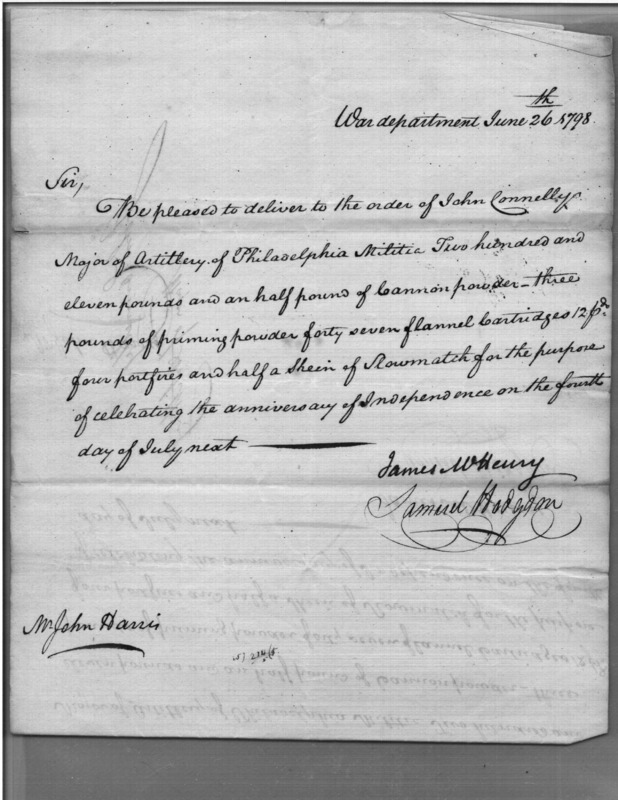 War department June 26th 1798
Sir,
Be pleased to deliver to the order of John Connelly
Major of Artillery of Philadelphia Militia Two hundred and
eleven pounds and an half pound of Cannon powder – three
pounds of priming powder forty seven flannel Cartridges 12 pdr
four portfires and half a Skein of Slowmatch for the purpose
of celebrating the anniversary of Independence on the fourth
day of July next
James McHenry
Samuel Hodgdon
Mr John Harris